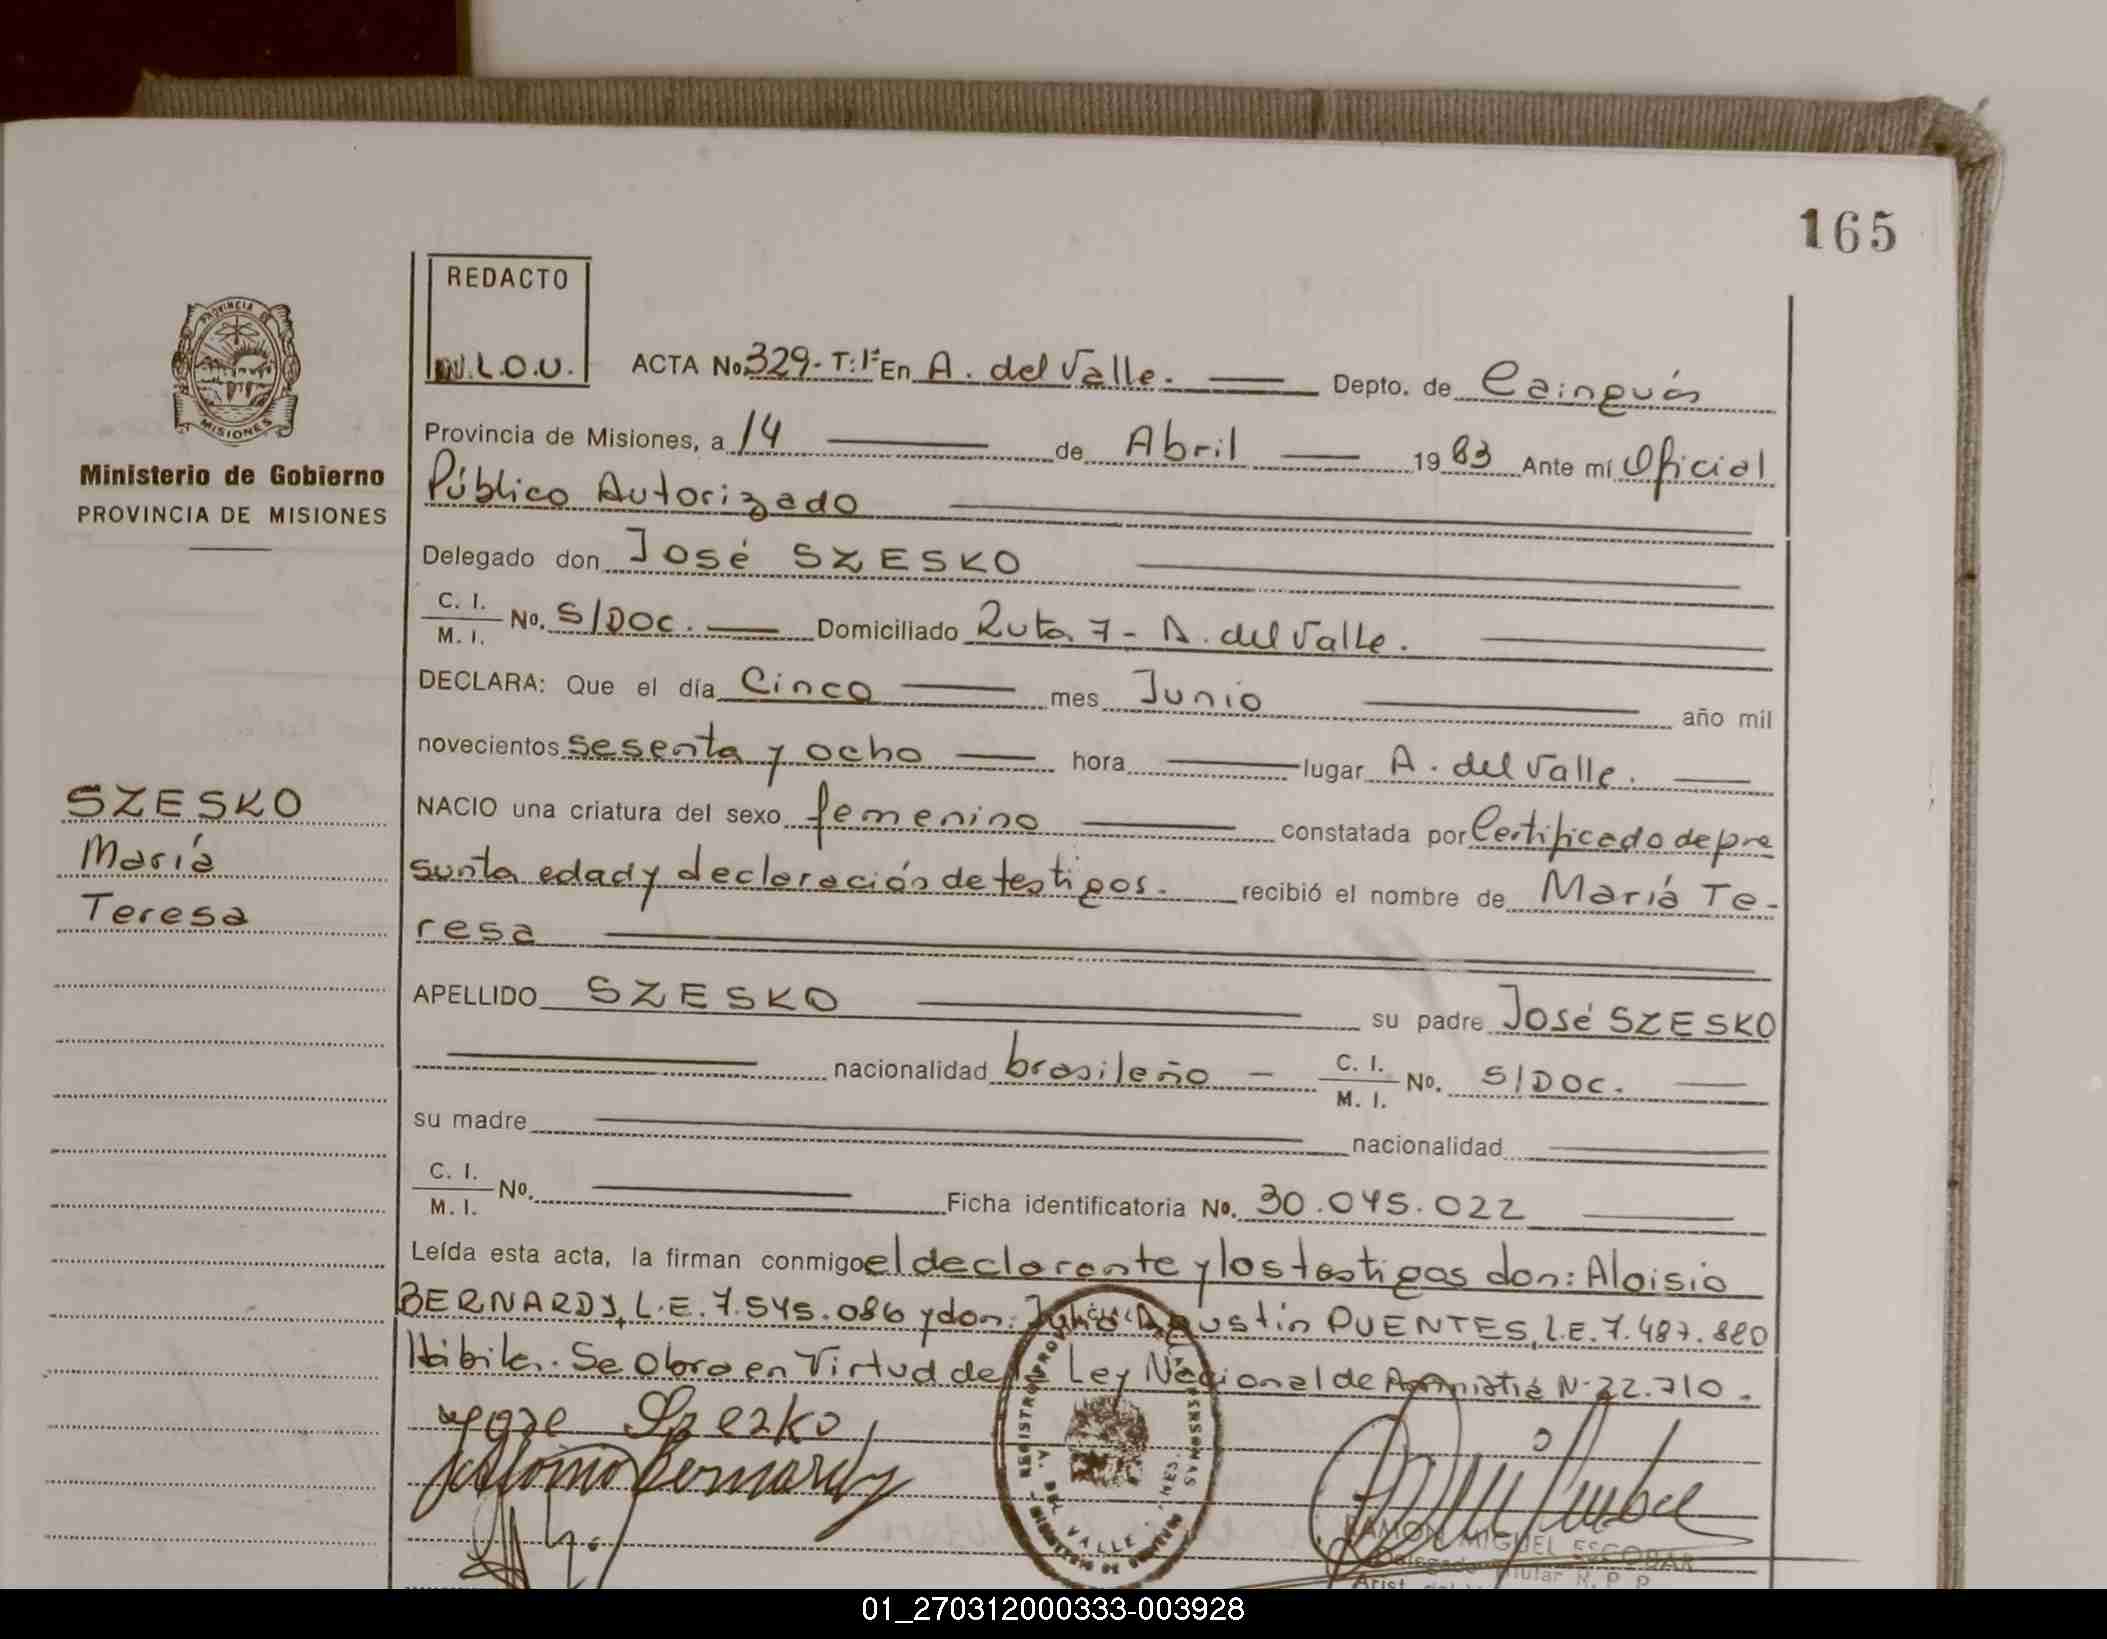 165
REDACTO
L.O.U.
ACTA No. 329 - T: 1º En A. del Valle. Depto. de Cainguás
Provincia de Misiones, a 14 de Abril 1983 Ante mí Oficial
Público Autorizado
Delegado don José SZESKO
C. I. / M. I. No. S/DOC. Domiciliado Ruta 7 - A. del Valle.
DECLARA: Que el día Cinco mes Junio año mil
novecientos sesenta y ocho hora lugar A. del Valle.
NACIO una criatura del sexo femenino constatada por Certificado de pre
sunta edad y declaración de testigos. recibió el nombre de María Te-
resa
APELLIDO SZESKO su padre José SZESKO
nacionalidad brasileño - C. I. / M. I. No. S/DOC.
su madre nacionalidad
C. I. / M. I. No. Ficha identificatoria No. 30.045.022
Leída esta acta, la firman conmigo el declarante y los testigos don: Aloisio
BERNARDY, L.E. 7.545.086 y don: Julio Agustín PUENTES, L.E. 7.487.880
Hábiles. Se Obra en Virtud de la Ley Nacional de Amnistía N- 22.710.
PROVINCIA DE
MISIONES
Ministerio de Gobierno
PROVINCIA DE MISIONES
SZESKO
María
Teresa
Szezko
Bernardy
A. DEL VALLE - MNES.
RAMON MIGUEL ESCOBAR
Delegado Titular R. P. P.
01_270312000333-003928